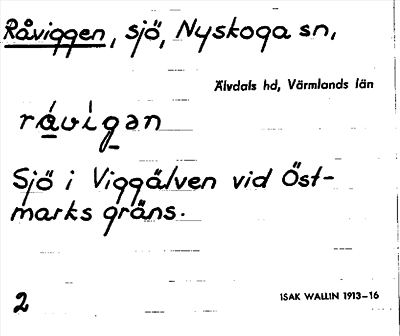 Råviggen, sjö, Nyskoga sn,
Älvdals hd, Värmlands län
Sjö i Viggälven vid Öst-
marks gräns.
2
ISAK WALLIN 1913-16